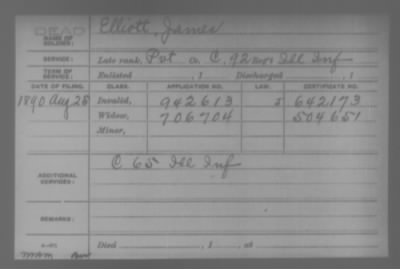 DEAD
NAME OF SOLDIER: Elliott, James
SERVICE: Late rank, Pvt Co. C, 92 Reg't Ill Inf
TERM OF SERVICE: Enlisted , 1 Discharged , 1
DATE OF FILING. CLASS. APPLICATION NO. LAW. CERTIFICATE NO.
1890 Aug 28 Invalid, 942613 J 642173
Widow, 706704 504651
Minor,
ADDITIONAL SERVICES: C 65 Ill Inf
REMARKS:
Died , 1 , at